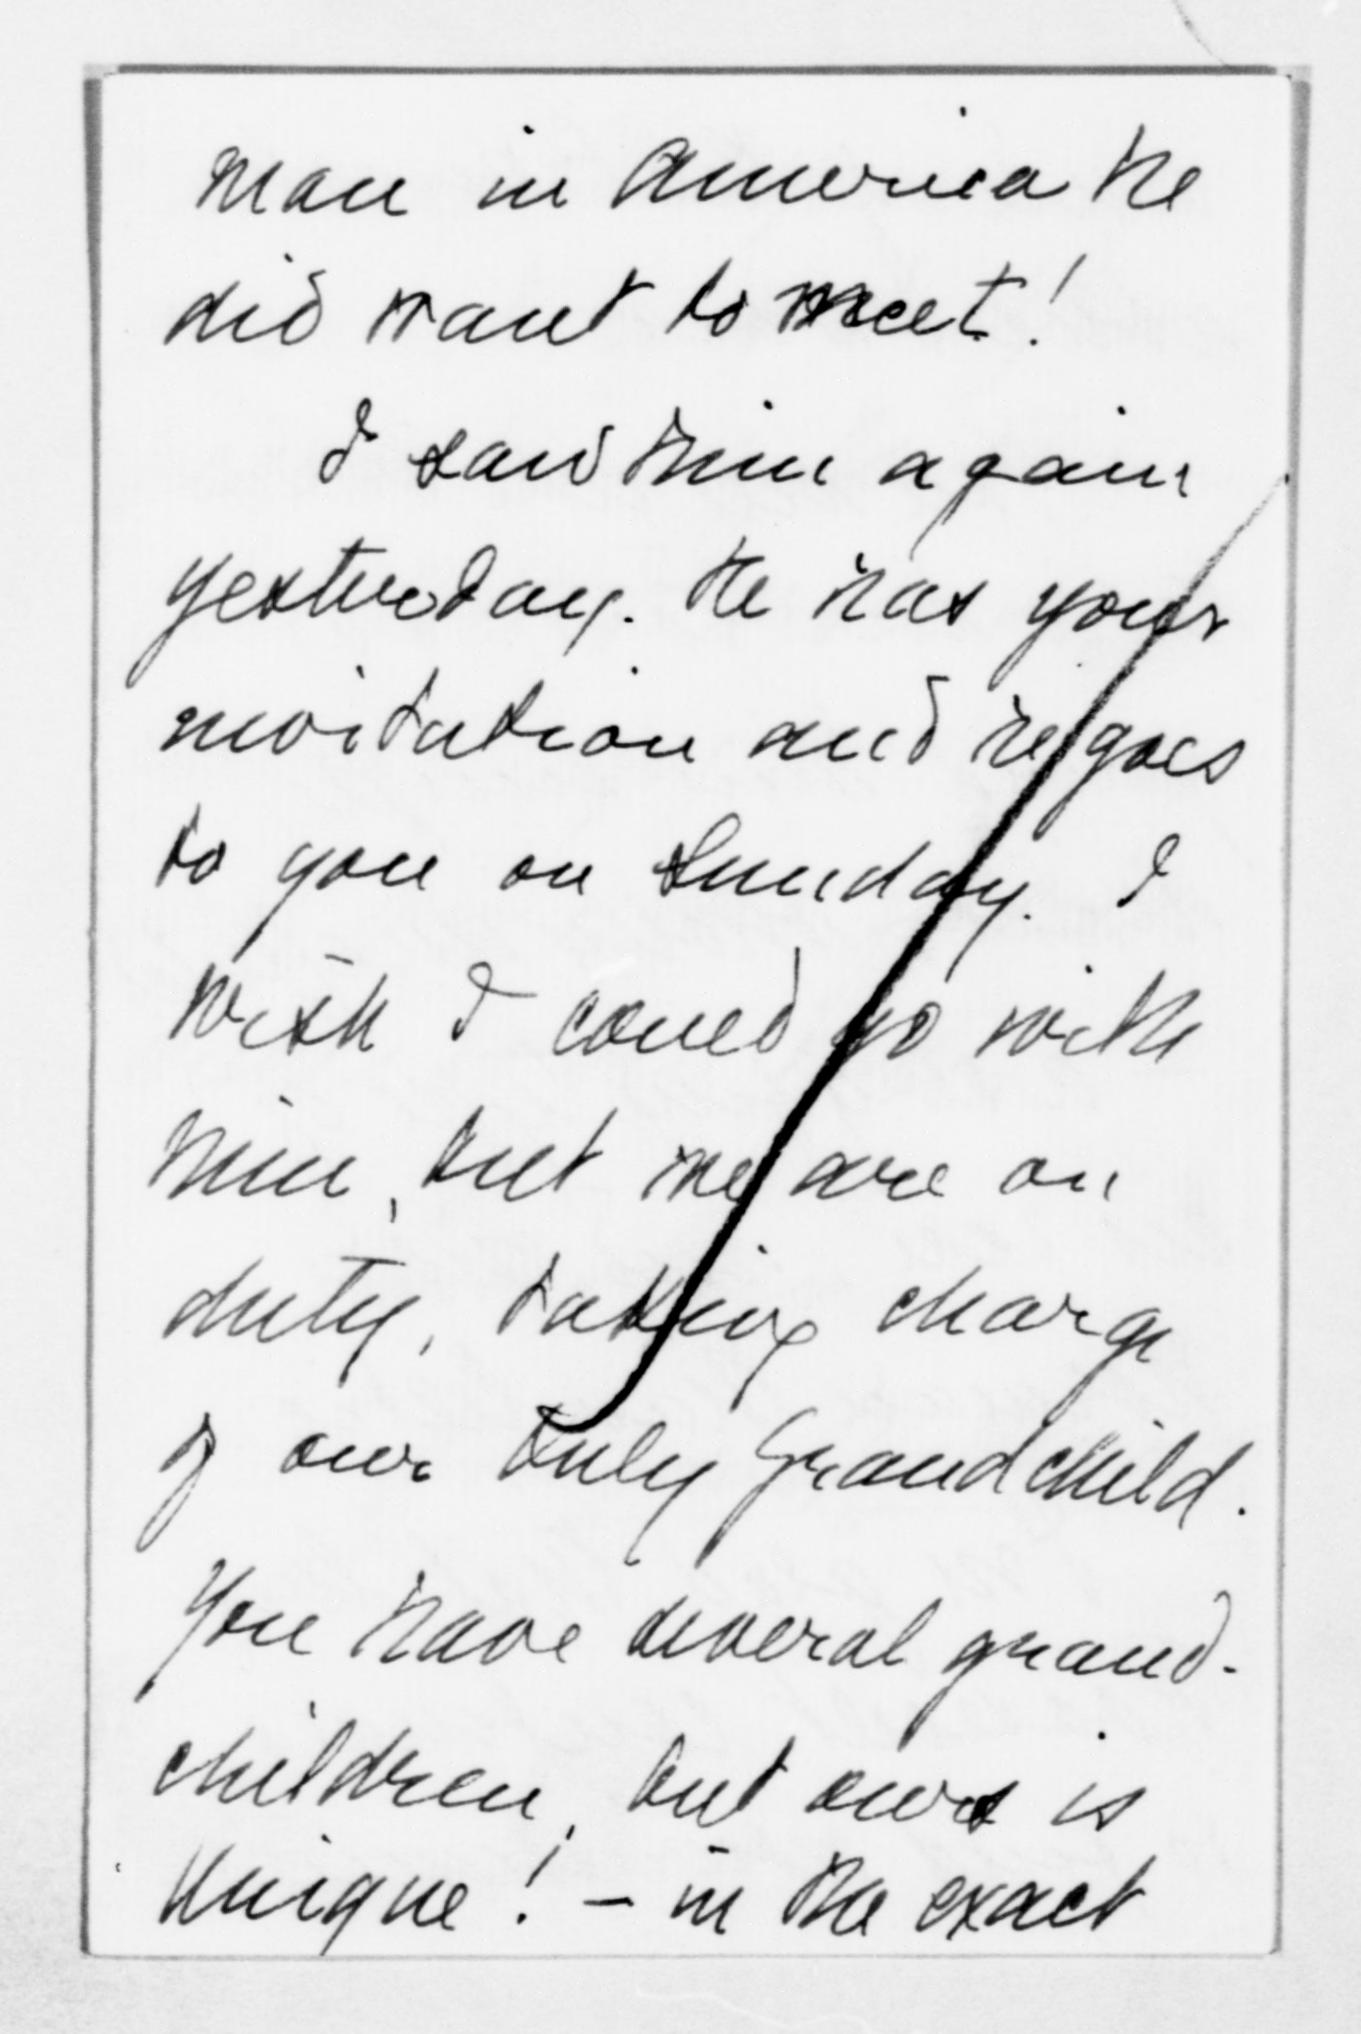 man in America he
did want to meet!
I saw him again
yesterday. He has your
invitation and he goes
to you on Sunday. I
wish I could go with
him, but we are on
duty, taking charge
of our only Grandchild.
You have several grand-
children, but ours is
Unique! – in the exact